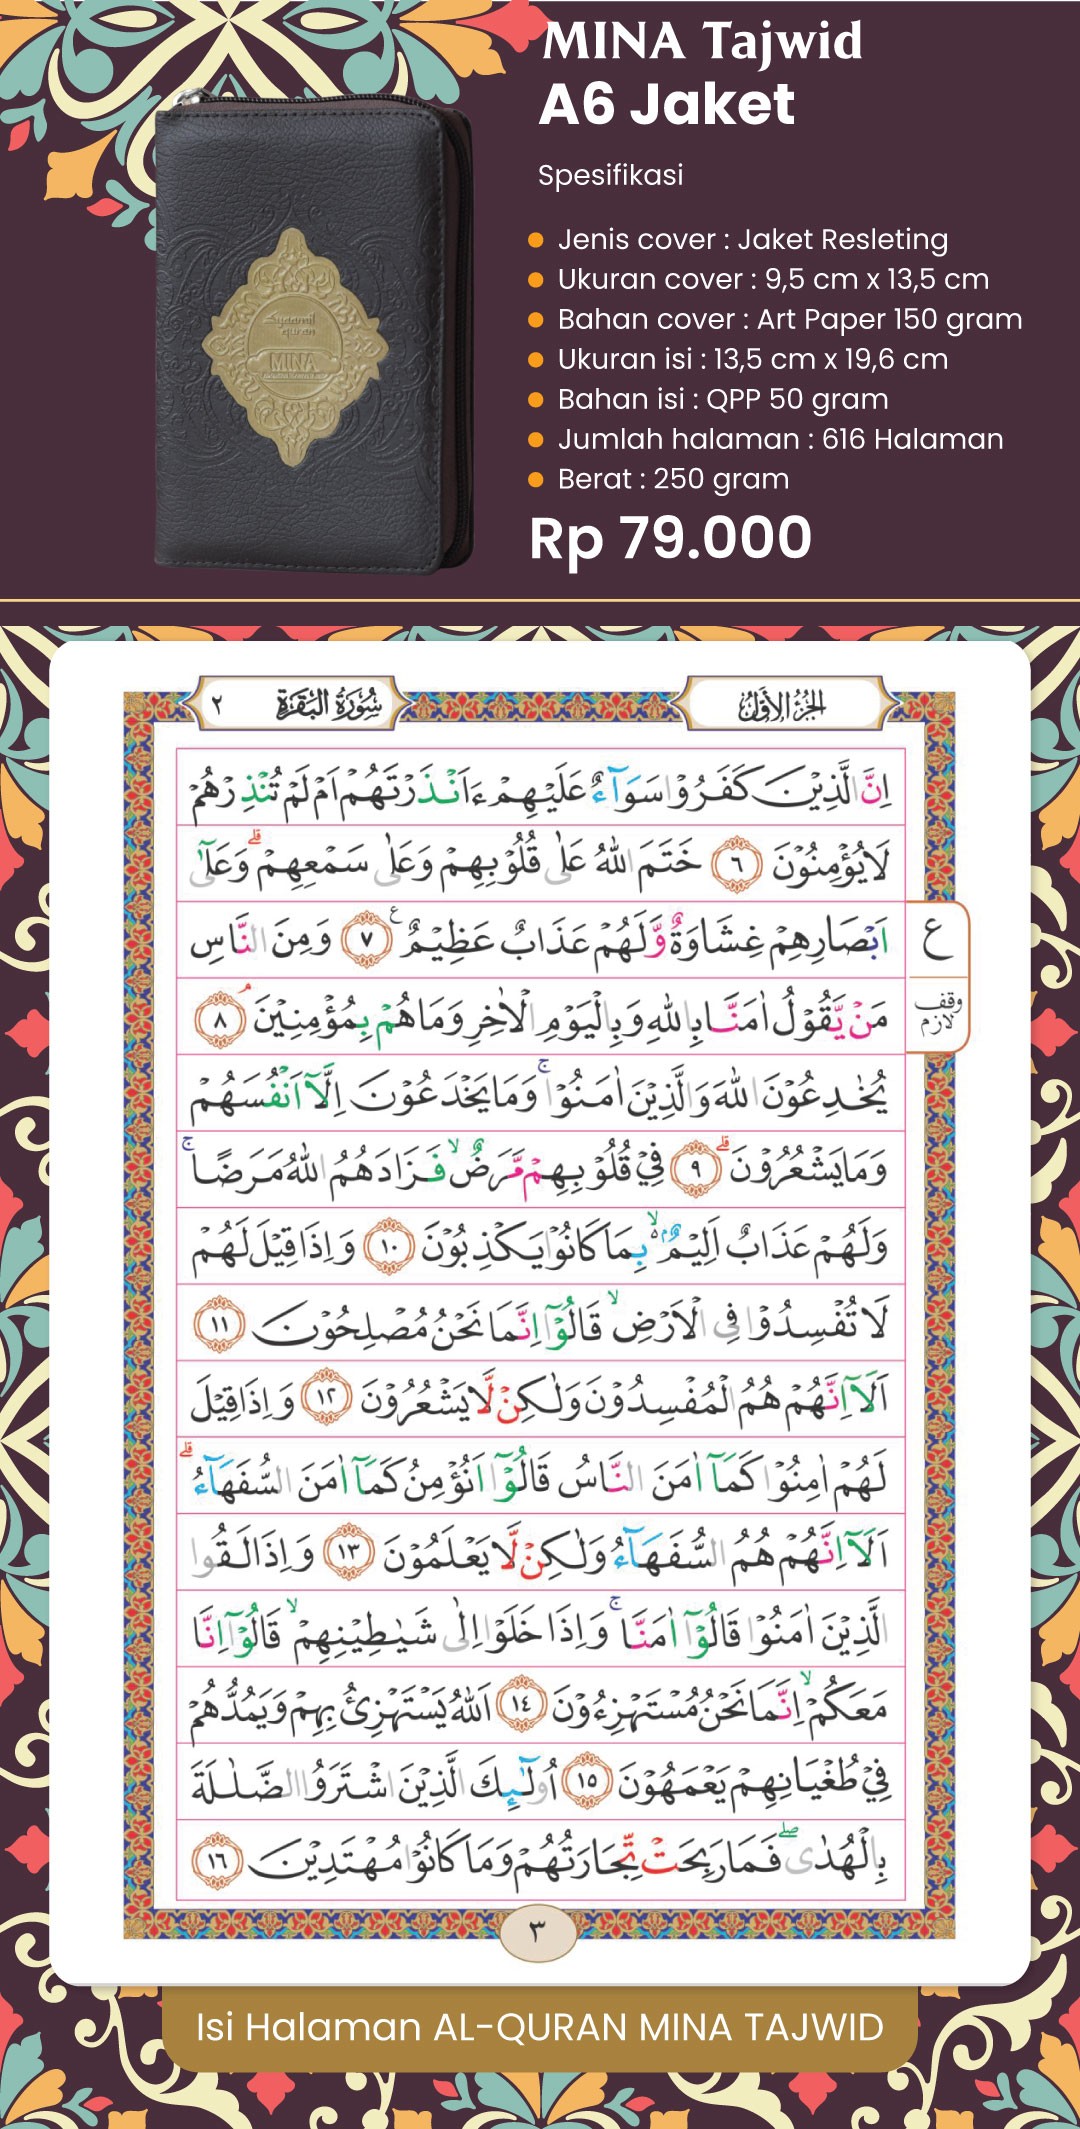 MINA Tajwid
A6 Jaket
Spesifikasi
Jenis cover : Jaket Resleting
Ukuran cover : 9,5 cm x 13,5 cm
Bahan cover : Art Paper 150 gram
Ukuran isi : 13,5 cm x 19,6 cm
Bahan isi : QPP 50 gram
Jumlah halaman : 616 Halaman
Berat : 250 gram
Rp 79.000
Syaamil
quran
MINA
الجزء الأول
سورة البقرة ٢
اِنَّ الَّذِيْنَ كَفَرُوْا سَوَاۤءٌ عَلَيْهِمْ ءَاَنْذَرْتَهُمْ اَمْ لَمْ تُنْذِرْهُمْ
لَا يُؤْمِنُوْنَ ٦ خَتَمَ اللّٰهُ عَلٰى قُلُوْبِهِمْ وَعَلٰى سَمْعِهِمْ ۗ وَعَلٰٓى
اَبْصَارِهِمْ غِشَاوَةٌ وَّلَهُمْ عَذَابٌ عَظِيْمٌ ٧ ع وَمِنَ النَّاسِ
ع
مَنْ يَّقُوْلُ اٰمَنَّا بِاللّٰهِ وَبِالْيَوْمِ الْاٰخِرِ وَمَا هُمْ بِمُؤْمِنِيْنَ ۘ ٨
وقف
لازم
يُخٰدِعُوْنَ اللّٰهَ وَالَّذِيْنَ اٰمَنُوْا ۚ وَمَا يَخْدَعُوْنَ اِلَّآ اَنْفُسَهُمْ
وَمَا يَشْعُرُوْنَ ۗ ٩ فِيْ قُلُوْبِهِمْ مَّرَضٌ ۙ فَزَادَهُمُ اللّٰهُ مَرَضًا ۚ
وَلَهُمْ عَذَابٌ اَلِيْمٌ ۢ ۙ بِمَا كَانُوْا يَكْذِبُوْنَ ١٠ وَاِذَا قِيْلَ لَهُمْ
لَا تُفْسِدُوْا فِى الْاَرْضِ ۙ قَالُوْٓا اِنَّمَا نَحْنُ مُصْلِحُوْنَ ١١
اَلَآ اِنَّهُمْ هُمُ الْمُفْسِدُوْنَ وَلٰكِنْ لَّا يَشْعُرُوْنَ ١٢ وَاِذَا قِيْلَ
لَهُمْ اٰمِنُوْا كَمَآ اٰمَنَ النَّاسُ قَالُوْٓا اَنُؤْمِنُ كَمَآ اٰمَنَ السُّفَهَاۤءُ ۗ
اَلَآ اِنَّهُمْ هُمُ السُّفَهَاۤءُ وَلٰكِنْ لَّا يَعْلَمُوْنَ ١٣ وَاِذَا لَقُوا
الَّذِيْنَ اٰمَنُوْا قَالُوْٓا اٰمَنَّا ۚ وَاِذَا خَلَوْا اِلٰى شَيٰطِيْنِهِمْ ۙ قَالُوْٓا اِنَّا
مَعَكُمْ ۙ اِنَّمَا نَحْنُ مُسْتَهْزِءُوْنَ ١٤ اَللّٰهُ يَسْتَهْزِئُ بِهِمْ وَيَمُدُّهُمْ
فِيْ طُغْيَانِهِمْ يَعْمَهُوْنَ ١٥ اُولٰۤىِٕكَ الَّذِيْنَ اشْتَرَوُا الضَّلٰلَةَ
بِالْهُدٰى ۖ فَمَا رَبِحَتْ تِّجَارَتُهُمْ وَمَا كَانُوْا مُهْتَدِيْنَ ١٦
٣
Isi Halaman AL-QURAN MINA TAJWID